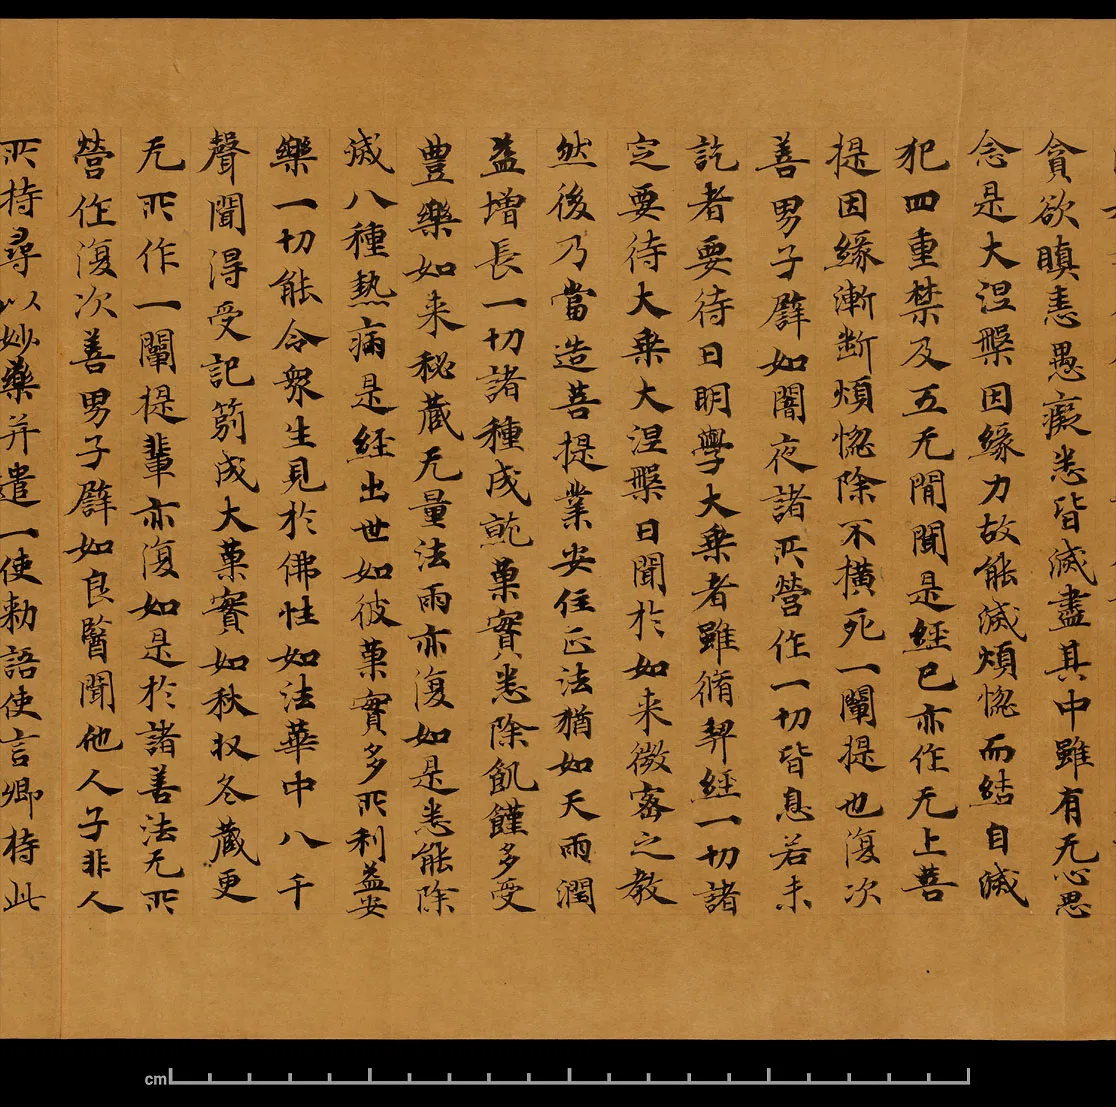 貪欲瞋恚愚癡悉皆滅盡其中雖有无心思
念是大涅槃因緣力故能滅煩惱而結自滅
犯四重禁及五无間聞是經已亦作无上菩
提因緣漸斷煩惱除不橫死一闡提也復次
善男子譬如闇夜諸所營作一切皆息若未
訖者要待日明學大乗者雖脩契經一切諸
定要待大乗大涅槃日聞於如来微密之教
然後乃當造菩提業安住正法猶如天雨潤
益增長一切諸種成就菓實悉除飢饉多受
豊樂如来秘蔵无量法雨亦復如是悉能除
滅八種熱病是經出世如彼菓實多所利益安
樂一切能令衆生見於佛性如法華中八千
聲聞得受記莂成大菓實如秋収冬蔵更
无所作一闡提輩亦復如是於諸善法无所
營作復次善男子譬如良醫聞他人子非人
所持尋以妙藥并遣一使勅語使言卿持此
cm